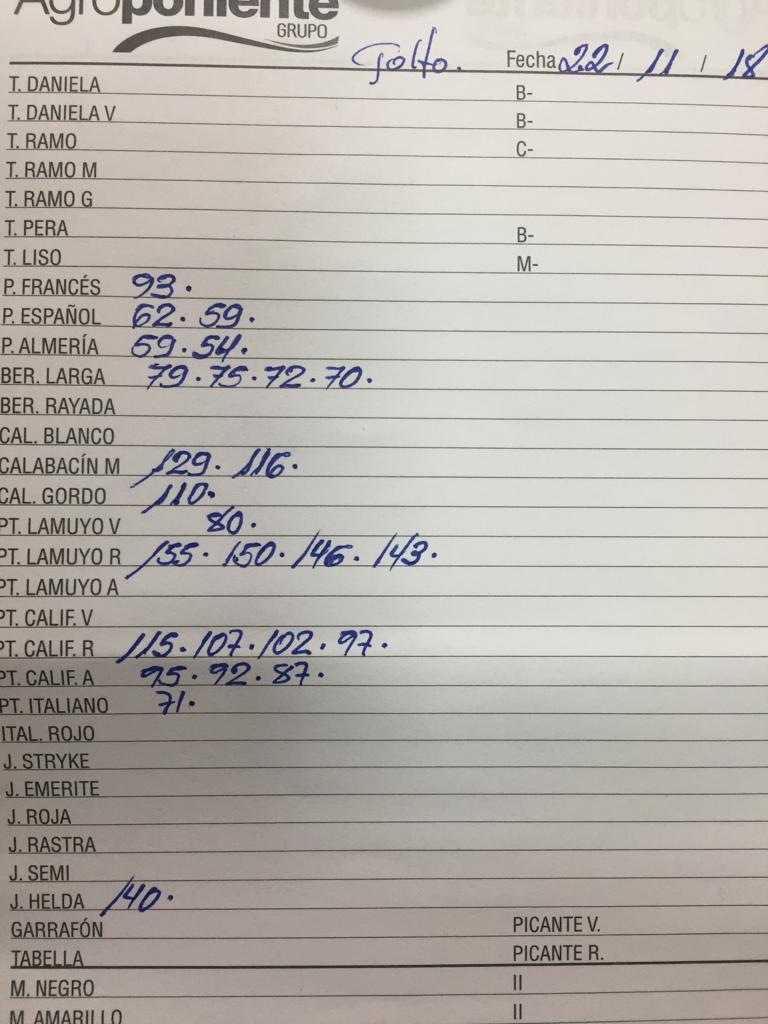 Agroponiente
GRUPO
Golfo. Fecha 22 / 11 / 18
T. DANIELA B-
T. DANIELA V B-
T. RAMO C-
T. RAMO M
T. RAMO G
T. PERA B-
T. LISO M-
P. FRANCÉS 93.
P. ESPAÑOL 62. 59.
P. ALMERÍA 59. 54.
BER. LARGA 79. 75. 72. 70.
BER. RAYADA
CAL. BLANCO
CALABACÍN M 129. 116.
CAL. GORDO 110.
PT. LAMUYO V 80.
PT. LAMUYO R 155. 150. 146. 143.
PT. LAMUYO A
PT. CALIF. V
PT. CALIF. R 115. 107. 102. 97.
PT. CALIF. A 95. 92. 87.
PT. ITALIANO 71.
ITAL. ROJO
J. STRYKE
J. EMERITE
J. ROJA
J. RASTRA
J. SEMI
J. HELDA 140.
GARRAFÓN PICANTE V.
TABELLA PICANTE R.
M. NEGRO II
M. AMARILLO II